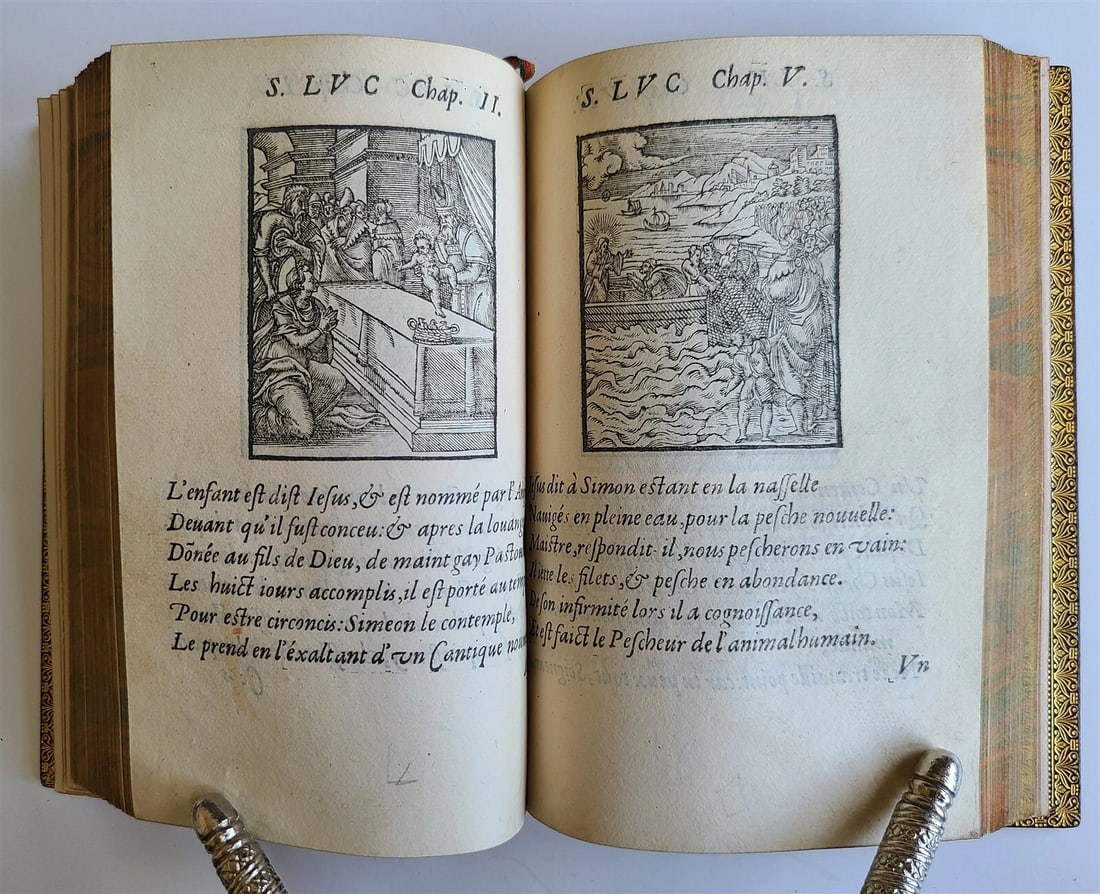 S. LVC Chap. II.
L'enfant est dist Iesus, & est nommé par l'
Deuant qu'il fust conceu: & apres la
Dōnée au fils de Dieu, de maint gay
Les huict iours accomplis, il est porté au
Pour estre circoncis: Simeon le contemple,
Le prend en l'éxaltant d'vn Cantique
S. LVC Chap. V.
dit à Simon estant en la nasselle
Nauigés en pleine eau, pour la pesche nouuelle:
Maistre, respondit-il, nous pescherons en vain:
Il iette les filets, & pesche en abondance.
De son infirmité lors il a cognoissance,
Et est faict le Pescheur de l'animal humain.
Vn